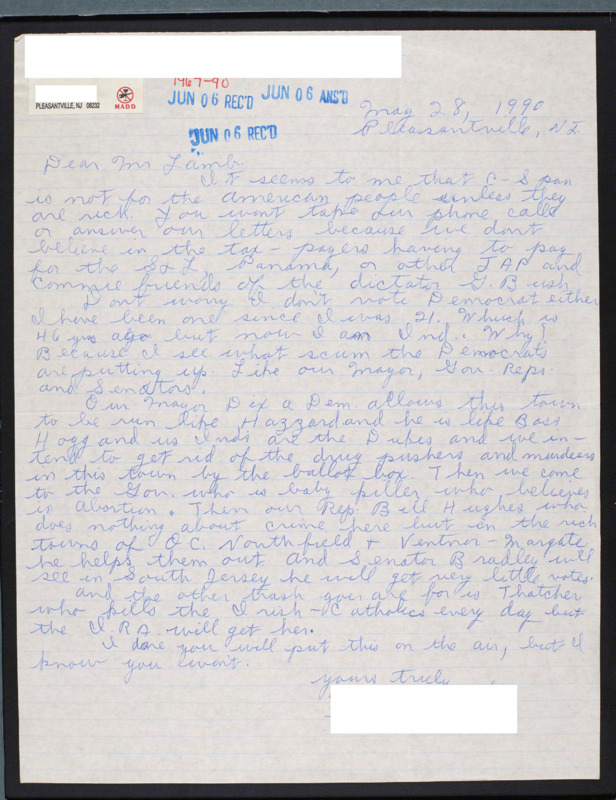 1967-90
JUN 06 REC'D JUN 06 ANS'D
PLEASANTVILLE, NJ 08232 MADD
JUN 06 REC'D
May 28, 1990
Pleasantville, N.J.
Dear Mr Lamb.
It seems to me that C-Span
is not for the american people unless they
are rich. You wont take our phone calls
or answer our letters because we dont
believe in the tax-payers having to pay
for the S&L, Panama, or other JAP and
Commie friends of the dictator G. Bush
Dont worry I dont vote Democrat either
I have been one since I was 21. Which is
46 yrs ago but now I am Ind.. Why?
Because I see what scum the Democrats
are putting up. Like our Mayor, Gov. Reps.
and Senators.
Our Mayor Dix a Dem. allows this town
to be run like Hazzard and he is like Boss
Hogg and us Inds are the Dukes and we in-
tend to get rid of the drug pushers and murders
in this town by the ballot box. Then we come
to the Gov. who is baby killer who believes
in abortion. Then our Rep. Bill Hughes who
does nothing about crime here but in the rich
towns of O.C. Northfield + Ventnor-Margate
he helps them out. And Senator Bradley will
see in South Jersey he will get very little votes.
and the other trash you are for is Thatcher
who kills the Irish-Catholics every day but
the I.R.A. will get her.
I dare you will put this on the air, but I
know you won't.
yours truly